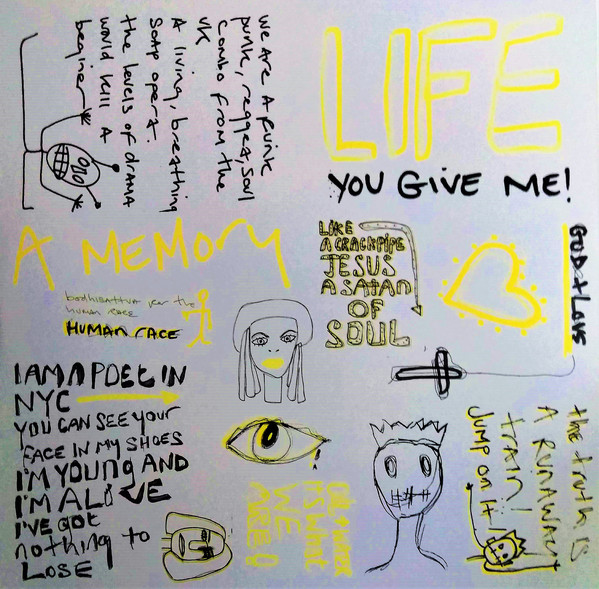 We Are A Punk
punk, reggea, soul
combo from the
UK
A living, breathing
soap opera.
the levels of drama
would kill a
beginer
LIFE
YOU GIVE ME!
A MEMORY
bodhisattva for the
human race
HUMAN RACE
LIKE
A CRACKPIPE
JESUS
A SATAN
OF
SOUL
GOD + LOVE
I AM A POET IN
NYC
YOU CAN SEE YOUR
FACE IN MY SHOES
I'M YOUNG AND
I'M ALIVE
I'VE GOT
nothing to
LOSE
IT'S WHAT
WE
the truth is
A RUNAWAY
train!
JUMP on it!